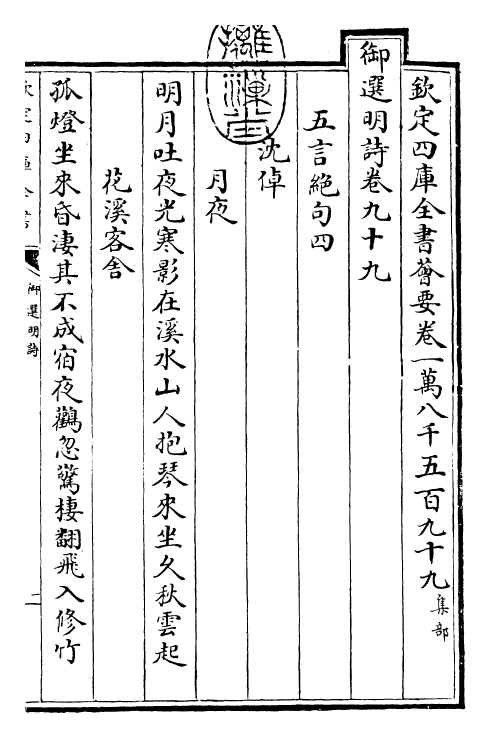 欽定四庫全書薈要卷一萬八千五百九十九集部
御選明詩卷九十九
五言絕句四
沈倬
月夜
明月吐夜光寒影在溪水山人抱琴來坐久秋雲起
花溪客舎
孤燈坐來昏淒其不成宿夜鸛忽驚棲翻飛入修竹
御選明詩